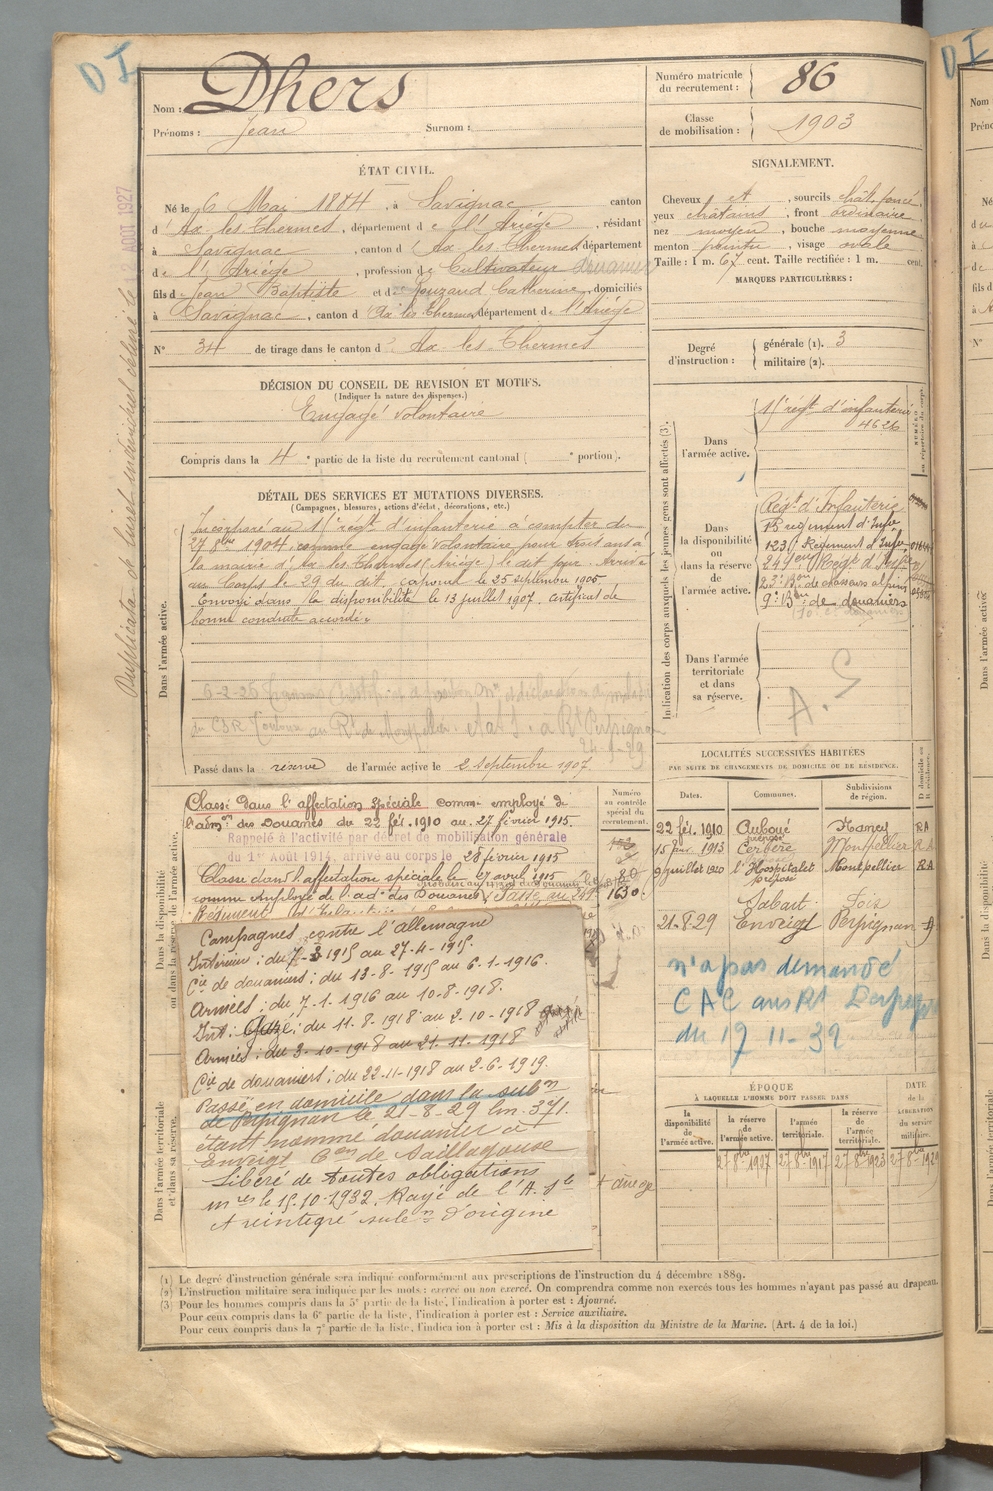 D I
Nom : Dhers
Prénoms : Jean Surnom :
Numéro matricule du recrutement : 86
Classe de mobilisation : 1903
ÉTAT CIVIL.
Né le 6 Mai 1884, à Savignac canton
d'Ax les Thermes, département de l'Ariége, résidant
à Savignac, canton d'Ax les Thermes département
de l'Ariége, profession de Cultivateur douanier
fils de Jean Baptiste et de Gouzand Catherine, domiciliés
à Savignac, canton d'Ax les Thermes département de l'Ariége
N° 34 de tirage dans le canton d'Ax les Thermes
SIGNALEMENT.
Cheveux et, sourcils chât. foncé
yeux châtains, front ordinaire
nez moyen, bouche moyenne
menton pointu, visage ovale
Taille : 1 m. 67 cent. Taille rectifiée : 1 m. cent.
MARQUES PARTICULIÈRES :
Degré d'instruction : générale (1). 3
militaire (2).
DÉCISION DU CONSEIL DE REVISION ET MOTIFS.
(Indiquer la nature des dispenses.)
Engagé volontaire
Compris dans la 4e partie de la liste du recrutement cantonal ( e portion).
DÉTAIL DES SERVICES ET MUTATIONS DIVERSES.
(Campagnes, blessures, actions d'éclat, décorations, etc.)
Dans l'armée active.
Incorporé au régt d'infanterie à compter du
27 8bre 1904, comme engagé volontaire pour trois ans à
la mairie d'Ax les Thermes (Ariége) le dit jour. Arrivé
au Corps le 29 du dit, caporal le 25 septembre 1905
Envoyé dans la disponibilité le 13 juillet 1907. certificat de
bonne conduite accordé.
Passé dans la réserve de l'armée active le 2 septembre 1907
Duplicata du livret individuel délivré le
AOUT 1927
Indication des corps auxquels les jeunes gens sont affectés (3).
Dans l'armée active.
régt d'infanterie
4626
Dans la disponibilité ou dans la réserve de l'armée active.
Régt d'Infanterie
régiment d'Infie
Régiment d'Infie
Régt d'Infie
Bon de chasseurs alpins
9e Bon de douaniers
Dans l'armée territoriale et dans sa réserve.
LOCALITÉS SUCCESSIVES HABITÉES
PAR SUITE DE CHANGEMENTS DE DOMICILE OU DE RÉSIDENCE.
Dates. Communes. Subdivisions de région. D domicile ou R résidence.
22 fév. 1910 Auboué Nancy RA
15 1913 Cerbère Montpellier R.A
9 juillet 1920 l'Hospitalet Montpellier R.A
préposé
Sabart Foix
21-8-29 Enveigt Perpignan D
n'a pas demandé
CAC au Rt Perpignan
du 17 11-32
Numéro au contrôle spécial du recrutement.
1630
Dans la disponibilité ou dans la réserve de l'armée active.
Classé dans l'affectation spéciale comme employé de
l'admon des Douanes du 22 fév. 1910 au 27 février 1915.
Rappelé à l'activité par décret de mobilisation générale
du 1er Août 1914, arrivé au corps le 28 février 1915
Classé dans l'affectation spéciale le 27 avril 1915
comme employé de l'adon des Douanes. Passé au
Régiment d'Infanterie
Dans l'armée territoriale et dans sa réserve.
Campagnes contre l'allemagne
Intérieur : du 7-3 1915 au 27-4-1915.
Cie de douaniers : du 13-8-1915 au 6-1-1916.
Armées : du 7-1-1916 au 10-8-1918.
Int : Gazé : du 11-8-1918 au 2-10-1918
Armées : du 3-10-1918 au 21-11-1918
Cie de douaniers : du 22-11-1918 au 2-6-1919.
Passé en domicile dans la subon
de Perpignan le 21-8-29 lm. 371.
étant nommé douanier à
Enveigt Con de Saillagouse
Libéré de toutes obligations
mres le 15-10-1932. Rayé de l'A. Sle
et réintégré subon d'origine
ÉPOQUE
À LAQUELLE L'HOMME DOIT PASSER DANS
la disponibilité de l'armée active. la réserve de l'armée active. l'armée territoriale. la réserve de l'armée territoriale.
DATE de la LIBÉRATION du service militaire.
27 8bre 1907 27 8bre 1917 27 8bre 1923 27 8bre 1929
(1) Le degré d'instruction générale sera indiqué conformément aux prescriptions de l'instruction du 4 décembre 1889.
(2) L'instruction militaire sera indiquée par les mots : exercé ou non exercé. On comprendra comme non exercés tous les hommes n'ayant pas passé au drapeau.
(3) Pour les hommes compris dans la 5e partie de la liste, l'indication à porter est : Ajourné.
Pour ceux compris dans la 6e partie de la liste, l'indication à porter est : Service auxiliaire.
Pour ceux compris dans la 7e partie de la liste, l'indication à porter est : Mis à la disposition du Ministre de la Marine. (Art. 4 de la loi.)